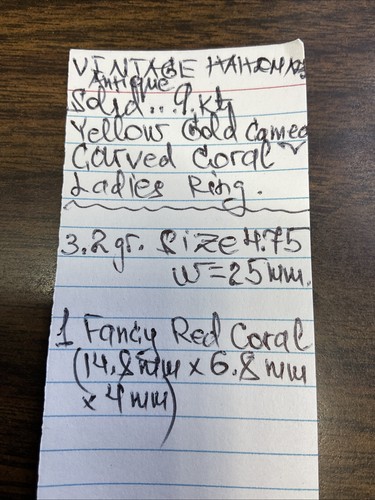 VINTAGE
Antique
Solid.. 9.kt
Yellow Gold Cameo
Carved Coral
Ladies Ring.
3.2gr. Size 4.75
W=25mm.
1 Fancy Red Coral
(14.8mm x 6.8 mm
x 4 mm)